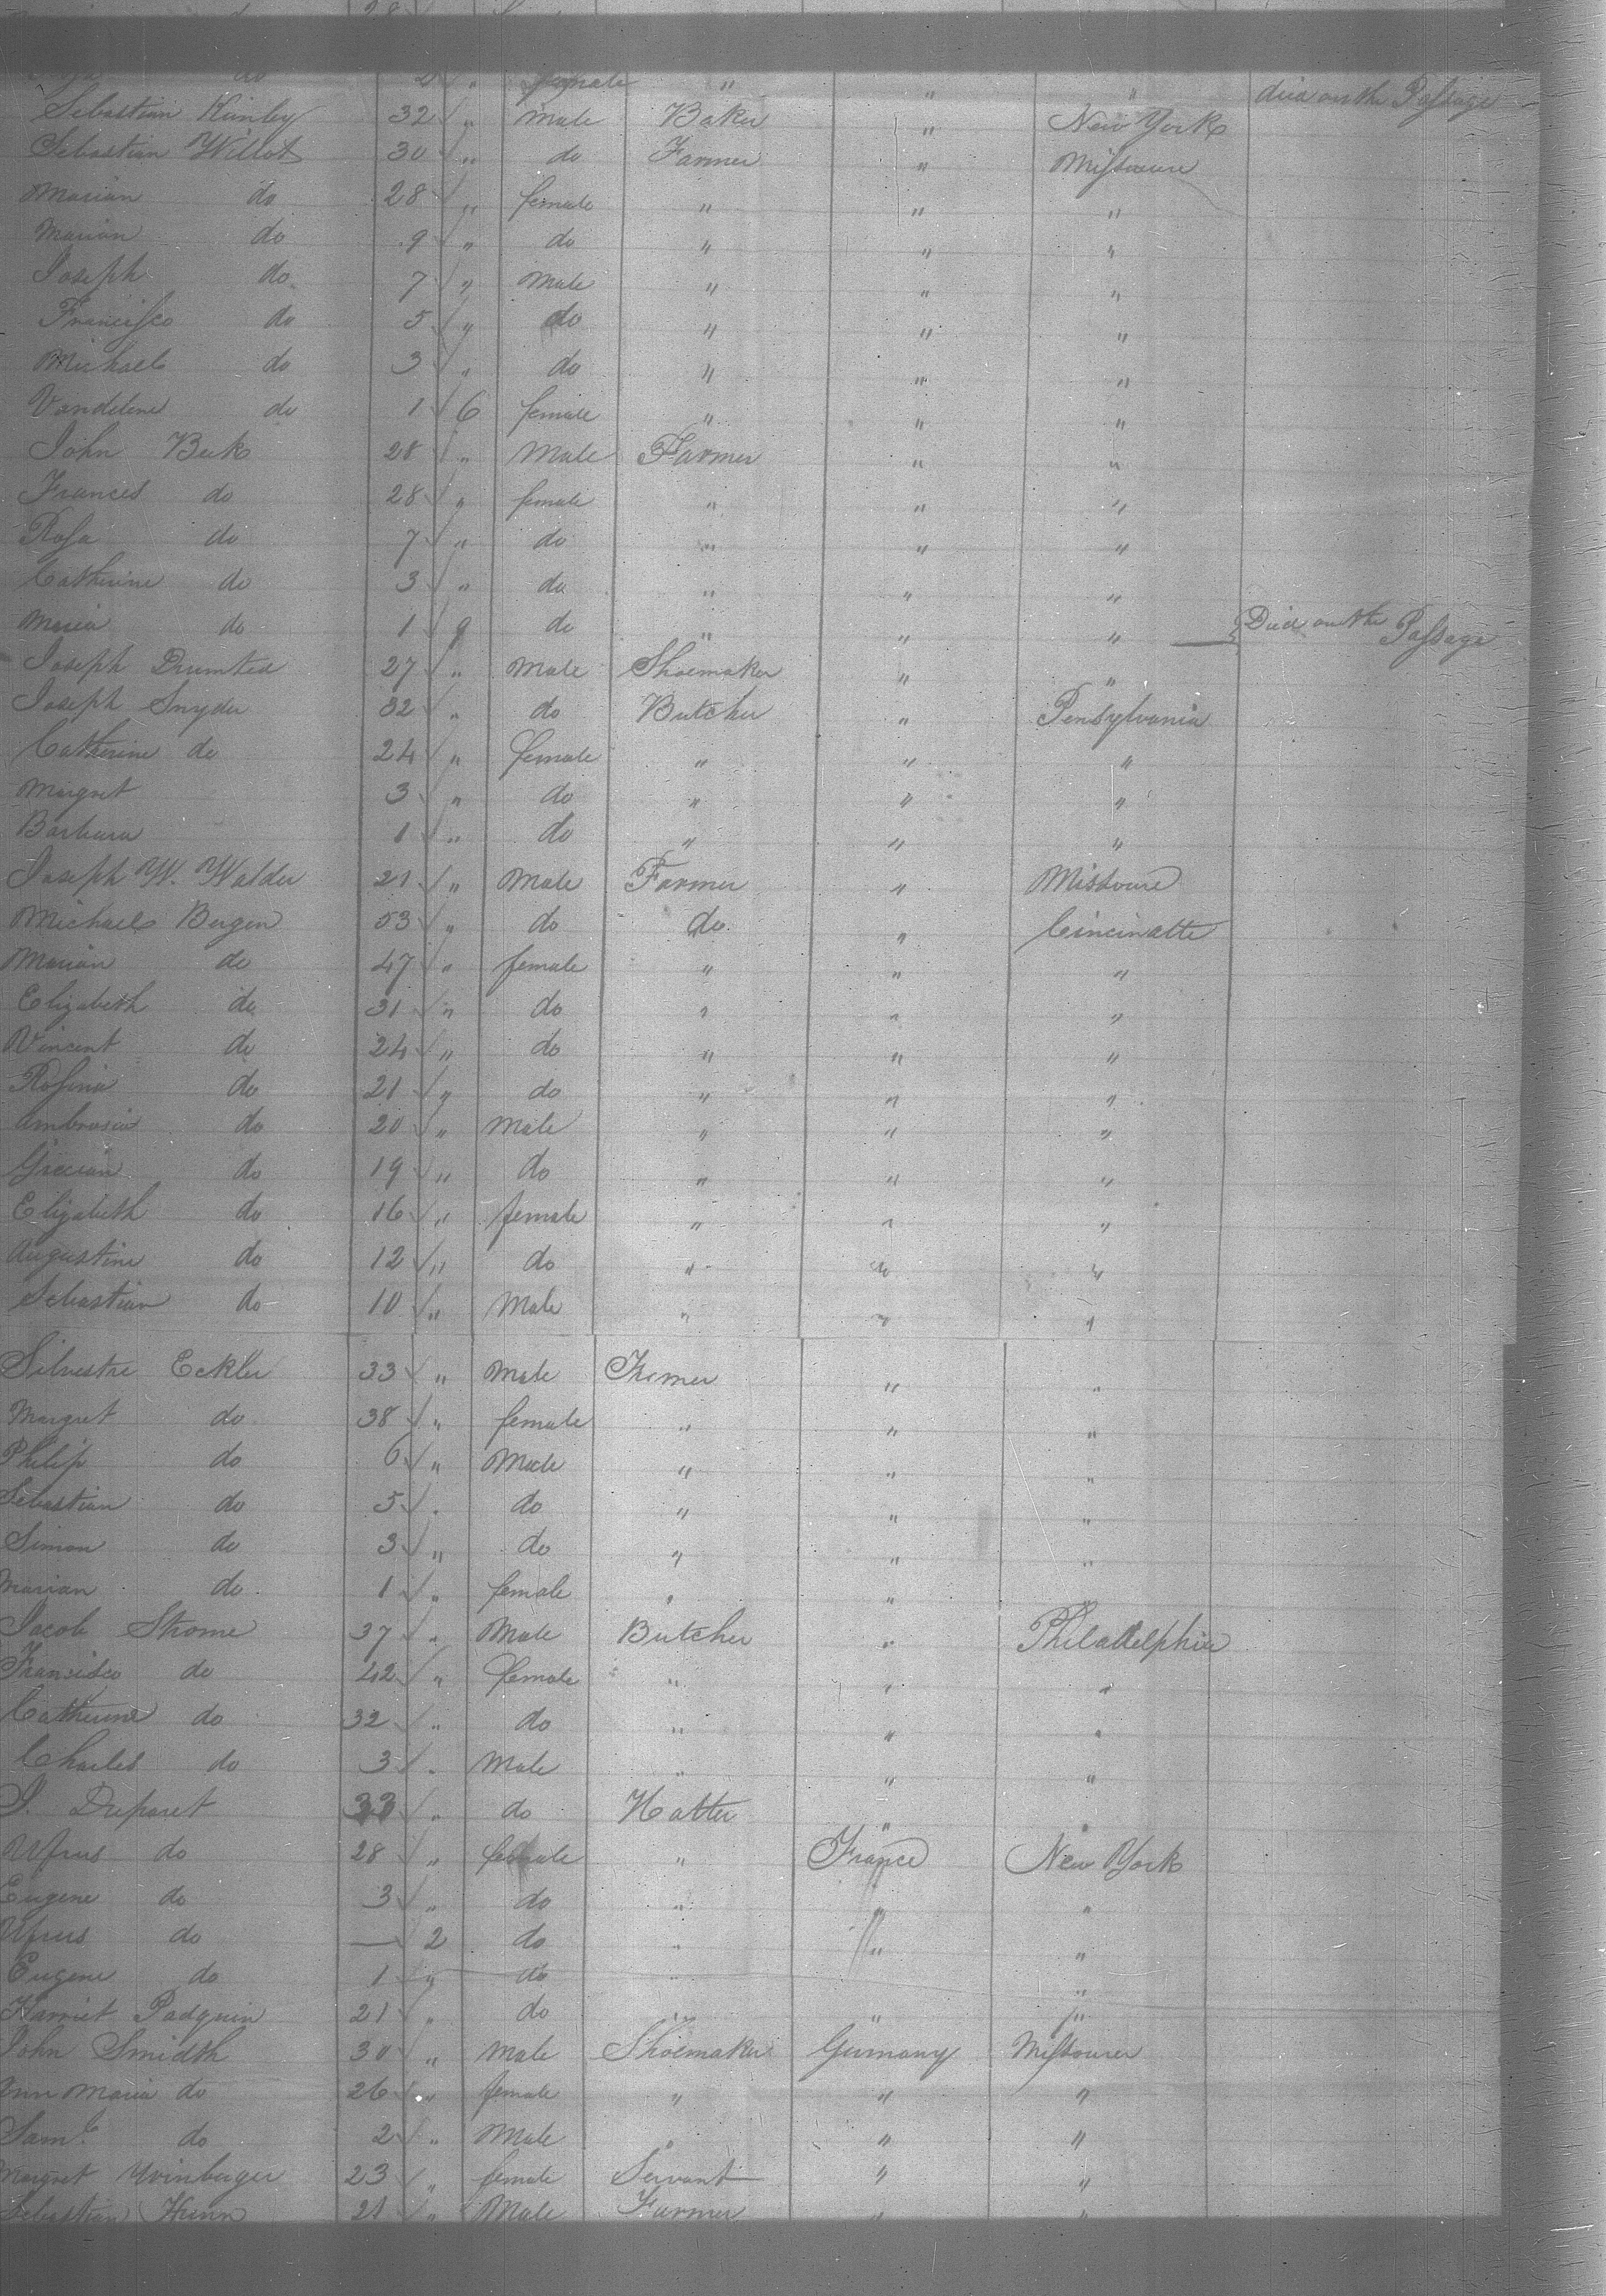 do 2 " female " " " died on the Passage
Sebastian Kunley 32 " male Baker " New York
Sebastian Willot 30 " do Farmer " Missoure
Marian do 28 " female " " "
Marian do 9 " do " " "
Joseph do 7 " male " " "
Francisco do 5 " do " " "
Michael do 3 " do " " "
Vandelene do 1 6 female " " "
John Beck 28 " Male Farmer " "
Frances do 28 " female " " "
Rosa do 7 " do " " "
Catherine do 3 " do " " "
Maria do 1 9 do " " " Died on the Passage
Joseph 27 " Male Shoemaker " "
Joseph Snyder 32 " do Butcher " Pensylvania
Catherine do 24 " female " " "
Margret 3 " do " " "
Barbara 1 " do " " "
Joseph W. Walder 21 " Male Farmer " Missoure
Michael Bergen 53 " do do " Cincinatte
Marian do 47 " female " " "
Elizabeth do 31 " do " " "
Vincent do 24 " do " " "
Rosina do 21 " do " " "
Ambrosia do 20 " Male " " "
Grecian do 19 " do " " "
Elizabeth do 16 " female " " "
Augustine do 12 " do " " "
Sebastian do 10 " Male " " "
Silvestre Eckler 33 " Male Farmer " "
Margret do 38 " female " " "
Philip do 6 " Male " " "
Sebastian do 5 " do " " "
Simon do 3 " do " " "
Marian do 1 " female " " "
Jacob Strome 37 " Male Butcher " Philadelphia
Francisco do 42 " female " " "
Catherine do 32 " do " " "
Charles do 3 " Male " " "
J. Deparet 33 " do Hatter " "
do 28 " female " France New York
Eugene do 3 " do " " "
do — 2 do " " "
Eugene do 1 " do " "
Harriet Padquin 21 " do " " "
John Smidth 30 " Male Shoemaker Germany Missourer
Ann Maria do 26 " female " " "
Saml do 2 " Male " " "
Margret Winberger 23 " female Servant " "
Sebastian Hunn 21 " Male Farmer " "